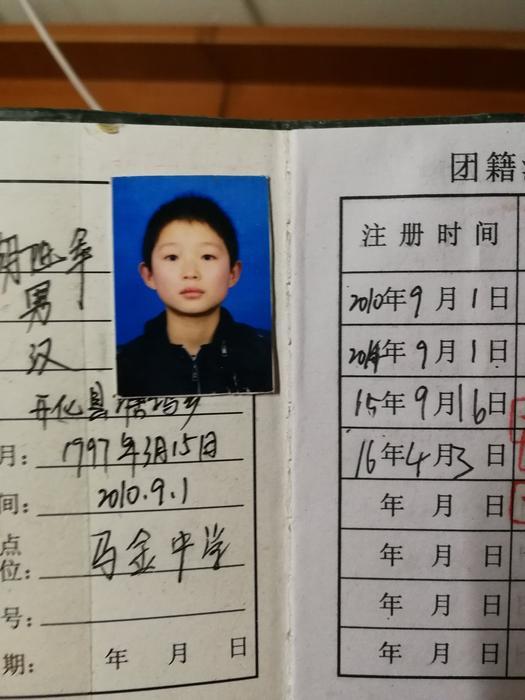 男
汉
开化县
月：1997年3月15日
间：2010.9.1
点
位：马金中学
号：
期： 年 月 日
团籍
注册时间
2010年9月1日
2014年9月1日
15年9月16日
16年4月3日
年 月 日
年 月 日
年 月 日
年 月 日